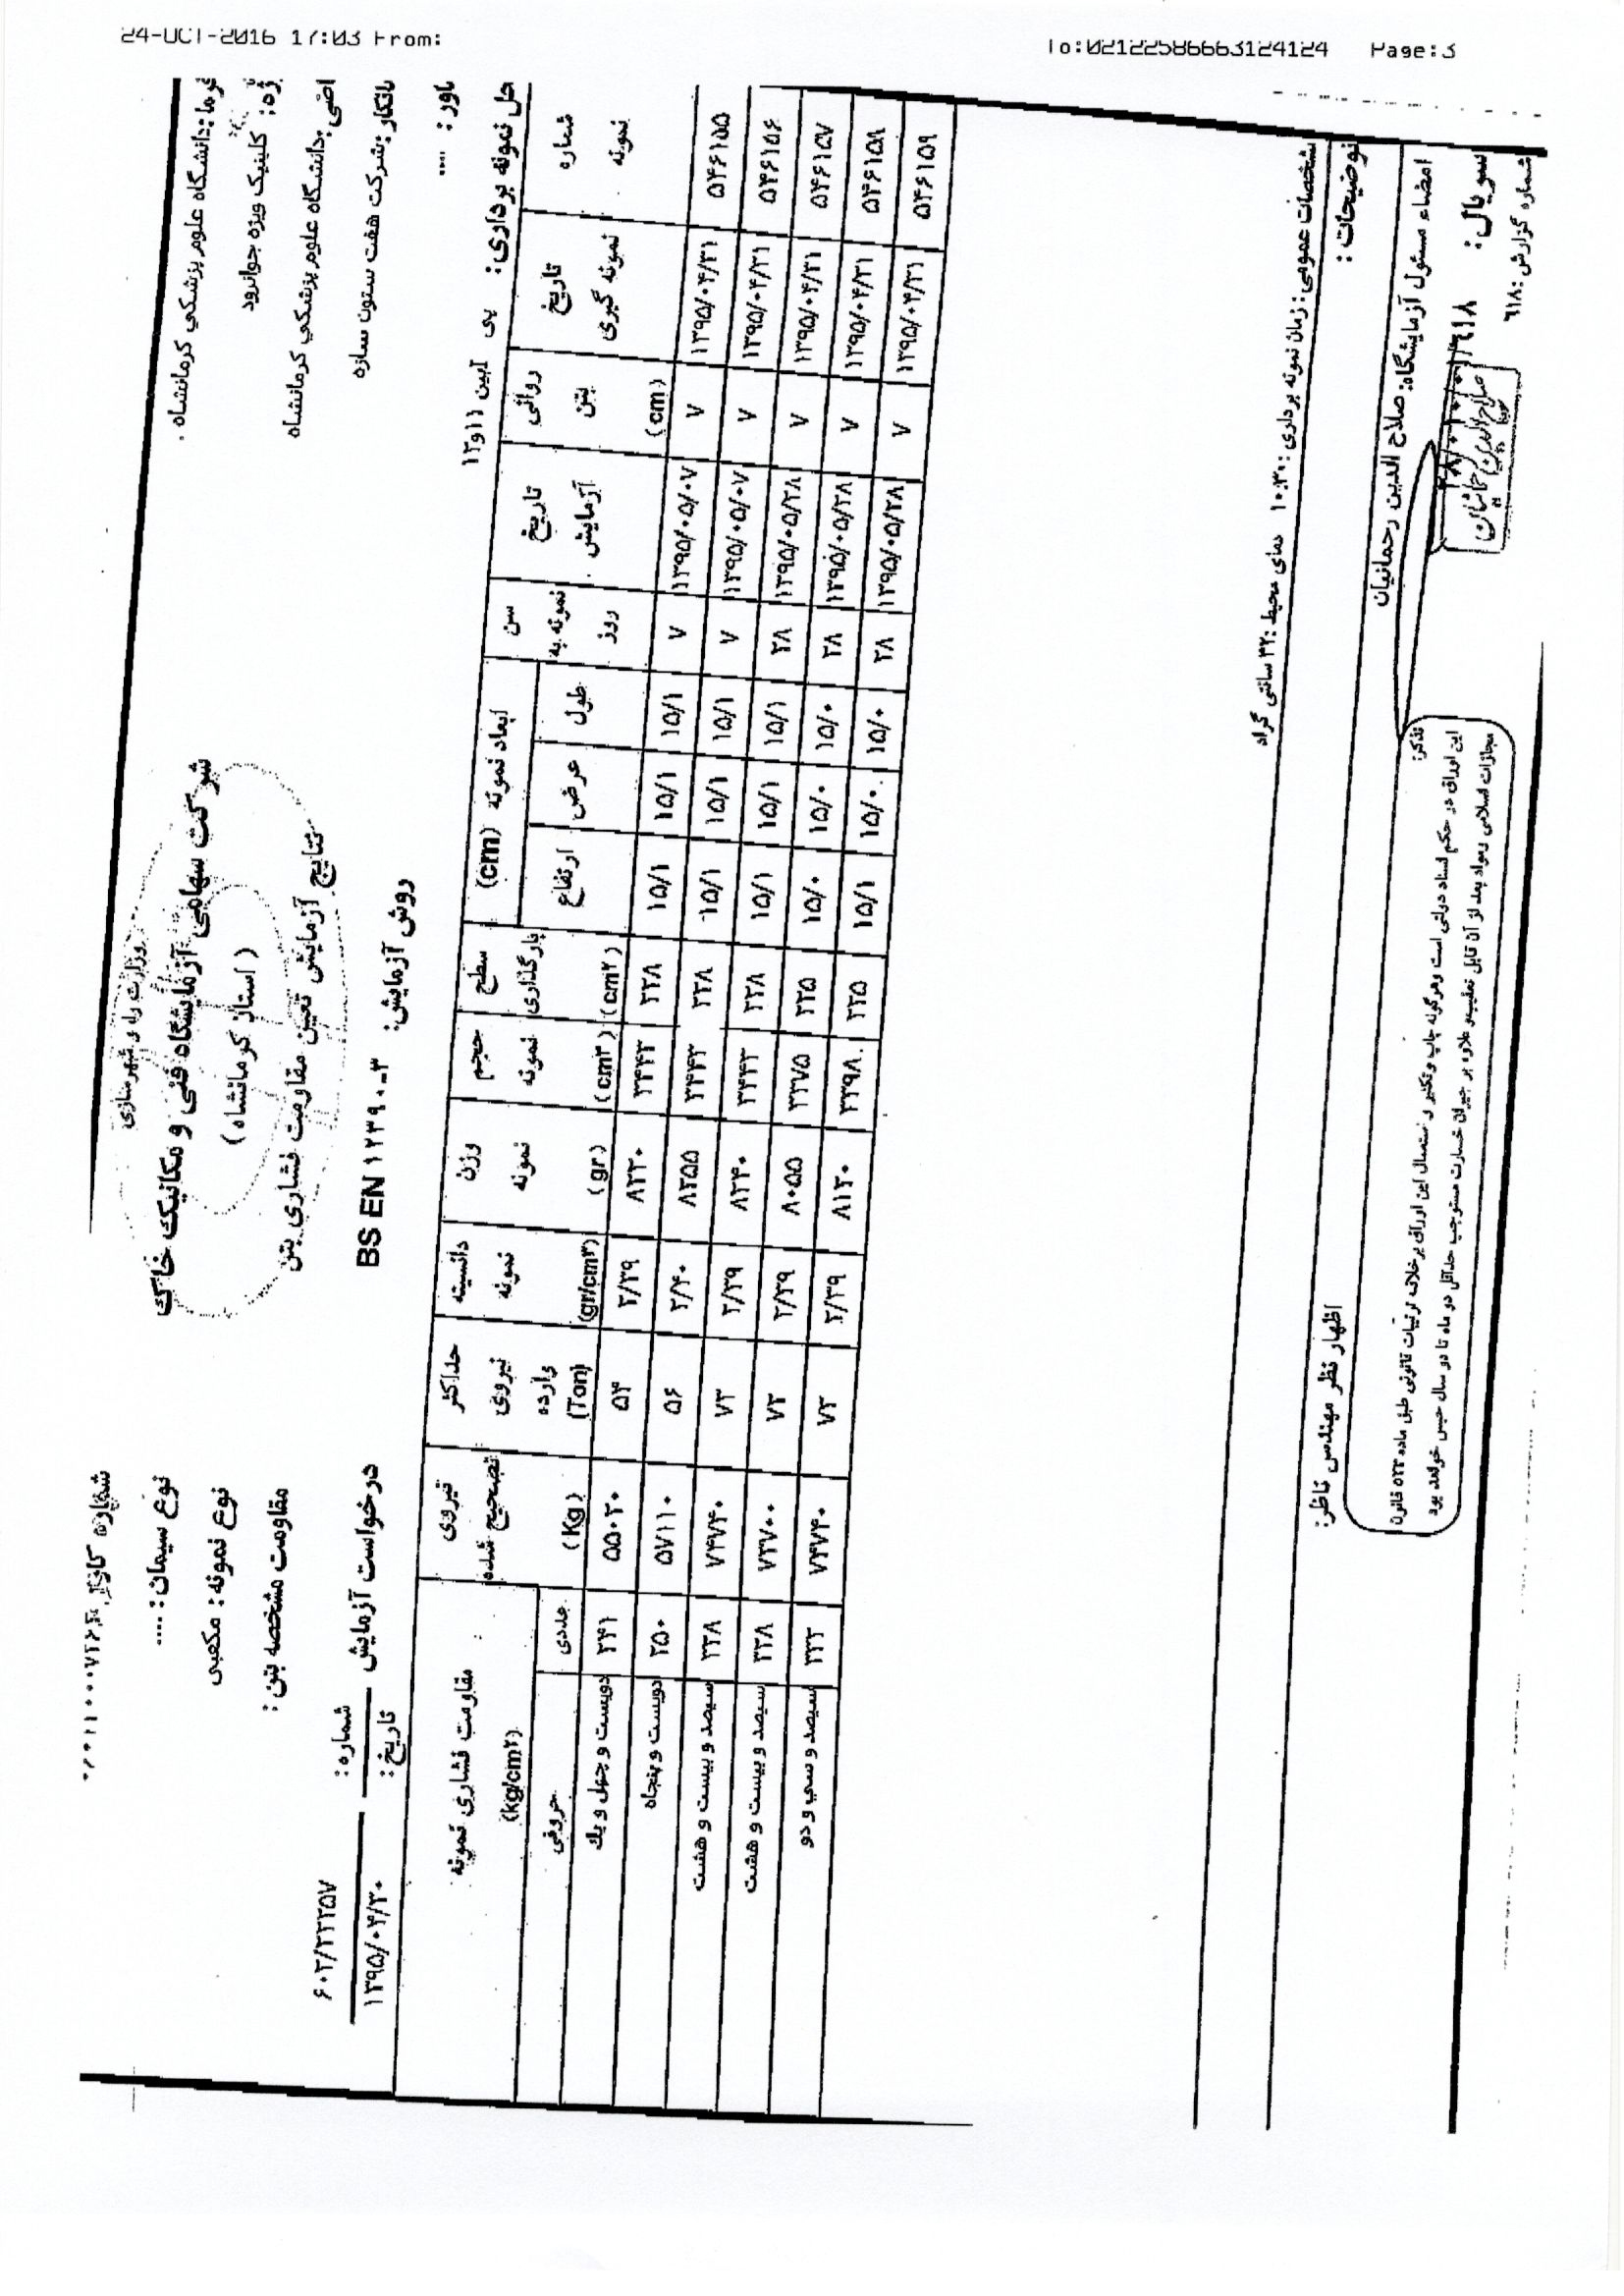 24-OCT-2016 17:03 From:
To:02122586663124124 Page:3
وزارت راه و شهرسازی
شرکت سهامی آزمایشگاه فنی و مکانیک خاک
(استان کرمانشاه)
نتایج آزمایش تعیین مقاومت فشاری بتن
روش آزمایش: BS EN ۱۲۳۹۰-۳
رفرما :دانشگاه علوم پزشکی کرمانشاه .
ژه: کلینیک ویژه جوانرود
اضی :دانشگاه علوم پزشکی کرمانشاه
انکار :شرکت هفت ستون سازه
اور : ....
حل نمونه برداری: پی آیین ۱۱و۱۲
نوع سیمان: ....
نوع نمونه: مکعبی
مقاومت مشخصه بتن:
درخواست آزمایش
شماره: ۶۰۲/۲۲۲۵۷
تاریخ: ۱۳۹۵/۰۴/۲۰
شماره نمونه | تاریخ نمونه گیری | روانی بتن (cm) | تاریخ آزمایش | سن نمونه به روز | ابعاد نمونه (cm) طول عرض ارتفاع | سطح بارگذاری (cm۲) | حجم نمونه (cm۳) | وزن نمونه (gr) | دانسیته نمونه (gr/cm۳) | حداکثر نیروی وارده (Ton) | نیروی تصحیح شده (Kg) | مقاومت فشاری نمونه (kg/cm۲) عددی حروفی
۵۴۶۱۵۵ ۱۳۹۵/۰۴/۳۱ ۷ ۱۳۹۵/۰۵/۰۷ ۷ ۱۵/۱ ۱۵/۱ ۱۵/۱ ۲۲۸ ۳۴۴۳ ۸۲۲۰ ۲/۳۹ ۵۴ ۵۵۰۲۰ ۲۴۱ دویست و چهل و یك
۵۴۶۱۵۶ ۱۳۹۵/۰۴/۳۱ ۷ ۱۳۹۵/۰۵/۰۷ ۷ ۱۵/۱ ۱۵/۱ ۱۵/۱ ۲۲۸ ۳۴۴۳ ۸۲۵۵ ۲/۴۰ ۵۶ ۵۷۱۱۰ ۲۵۰ دویست و پنجاه
۵۴۶۱۵۷ ۱۳۹۵/۰۴/۳۱ ۷ ۱۳۹۵/۰۵/۲۸ ۲۸ ۱۵/۱ ۱۵/۱ ۱۵/۱ ۲۲۸ ۳۴۴۳ ۸۲۴۰ ۲/۳۹ ۷۳ ۷۴۷۴۰ ۳۲۸ سیصد و بیست و هشت
۵۴۶۱۵۸ ۱۳۹۵/۰۴/۳۱ ۷ ۱۳۹۵/۰۵/۲۸ ۲۸ ۱۵/۰ ۱۵/۰ ۱۵/۰ ۲۲۵ ۳۳۷۵ ۸۰۵۵ ۲/۳۹ ۷۲ ۷۳۷۰۰ ۳۲۸ سیصد و بیست و هشت
۵۴۶۱۵۹ ۱۳۹۵/۰۴/۳۱ ۷ ۱۳۹۵/۰۵/۲۸ ۲۸ ۱۵/۰ ۱۵/۰ ۱۵/۱ ۲۲۵ ۳۳۹۸ ۸۱۲۰ ۲/۳۹ ۷۳ ۷۴۷۴۰ ۳۳۲ سیصد و سی و دو
شخصات عمومی: زمان نمونه برداری :۱۰:۳۰ دمای محیط :۳۲ سانتی گراد
توضیحات :
اظهار نظر مهندس ناظر:
امضاء مسئول آزمایشگاه: صلاح الدین رحمانیان
تذکر:
این اوراق در حکم اسناد دولتی است و هرگونه چاپ و تکثیر و استعمال این اوراق برخلاف ترتیبات قانونی طبق ماده ۵۲۳ قانون
مجازات اسلامی و مواد بعد از آن قابل تعقیب و علاوه بر جبران خسارت مستوجب حداقل دو ماه تا دو سال حبس خواهد بود
سریال:
صلاح الدین رحمانیان
شماره گزارش :۶۱۸